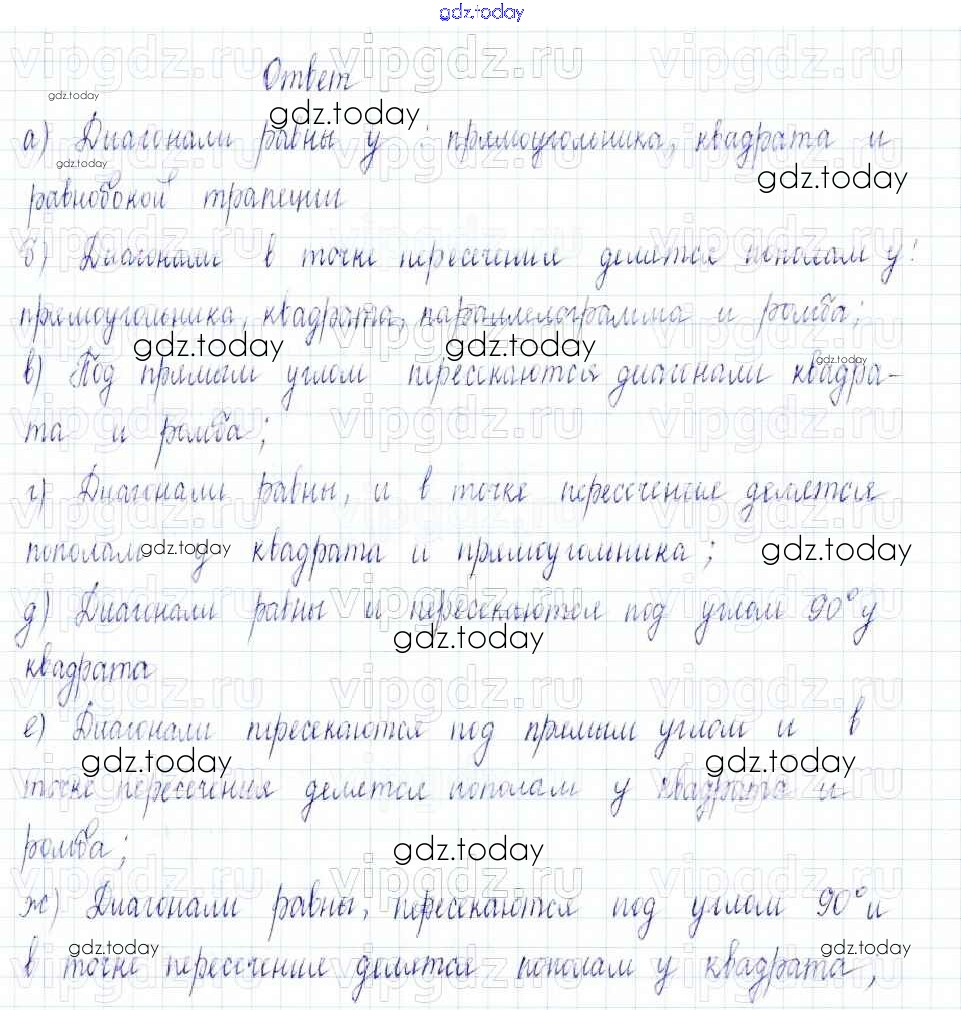 gdz.today
Ответ
а) Диагонали равны у : прямоугольника, квадрата и
равнобокой трапеции
б) Диагонали в точке пересечения делятся пополам у:
прямоугольника, квадрата, параллелограмма и ромба;
в) Под прямым углом пересекаются диагонали квадра-
та и ромба;
г) Диагонали равны, и в точке пересечения делятся
пополам у квадрата и прямоугольника;
д) Диагонали равны и пересекаются под углом 90° у
квадрата
е) Диагонали пересекаются под прямым углом и в
точке пересечения делятся пополам у квадрата и
ромба;
ж) Диагонали равны, пересекаются под углом 90° и
в точке пересечения делятся пополам у квадрата;